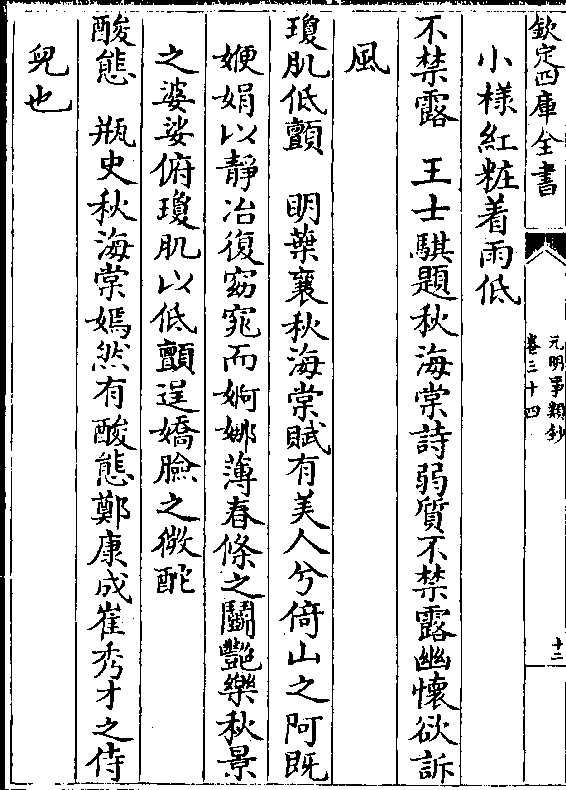 欽定四庫全書
元明事類鈔
卷三十四
十二
小様紅粧着雨低
不禁露　王士騏題秋海棠詩弱質不禁露幽懷欲訴
風
瓊肌低顫　明葉襄秋海棠賦有美人兮倚山之阿既
㛹娟以靜冶復窈窕而婀娜薄春條之鬭艷樂秋景
之婆娑俯瓊肌以低顫逞嬌臉之微酡
酸態　瓶史秋海棠嫣然有酸態鄭康成崔秀才之侍
兒也